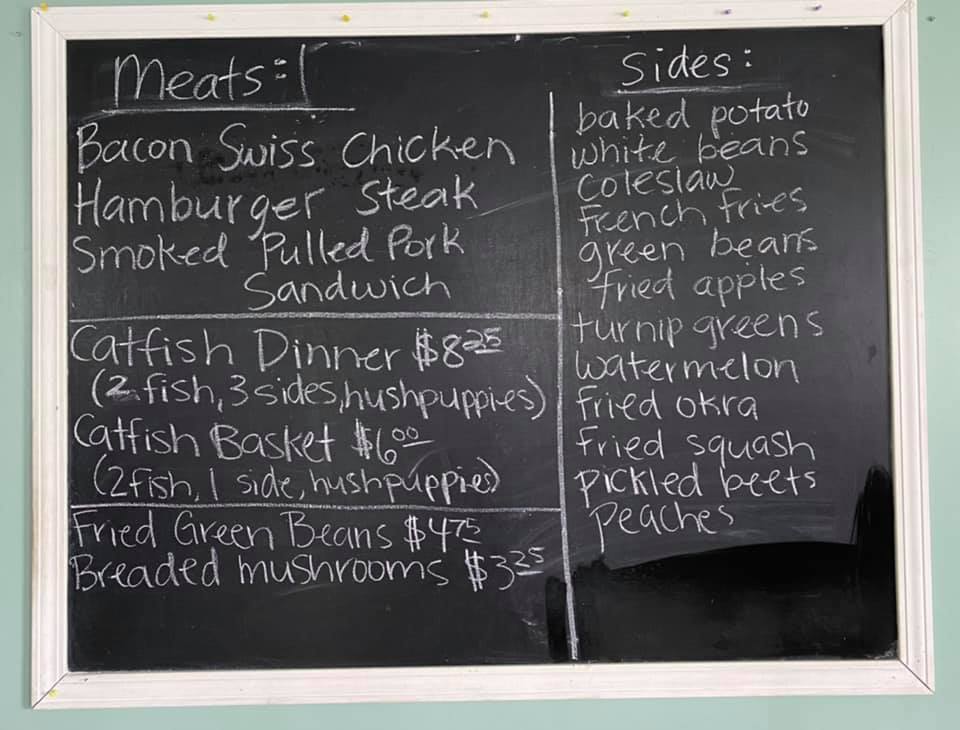 Meats:
Bacon Swiss Chicken
Hamburger Steak
Smoked Pulled Pork
Sandwich
Catfish Dinner $8.25
(2 fish, 3 sides, hushpuppies)
Catfish Basket $6.00
(2 fish, 1 side, hushpuppies)
Fried Green Beans $4.75
Breaded mushrooms $3.25
Sides:
baked potato
white beans
coleslaw
french fries
green beans
fried apples
turnip greens
watermelon
fried okra
fried squash
pickled beets
peaches